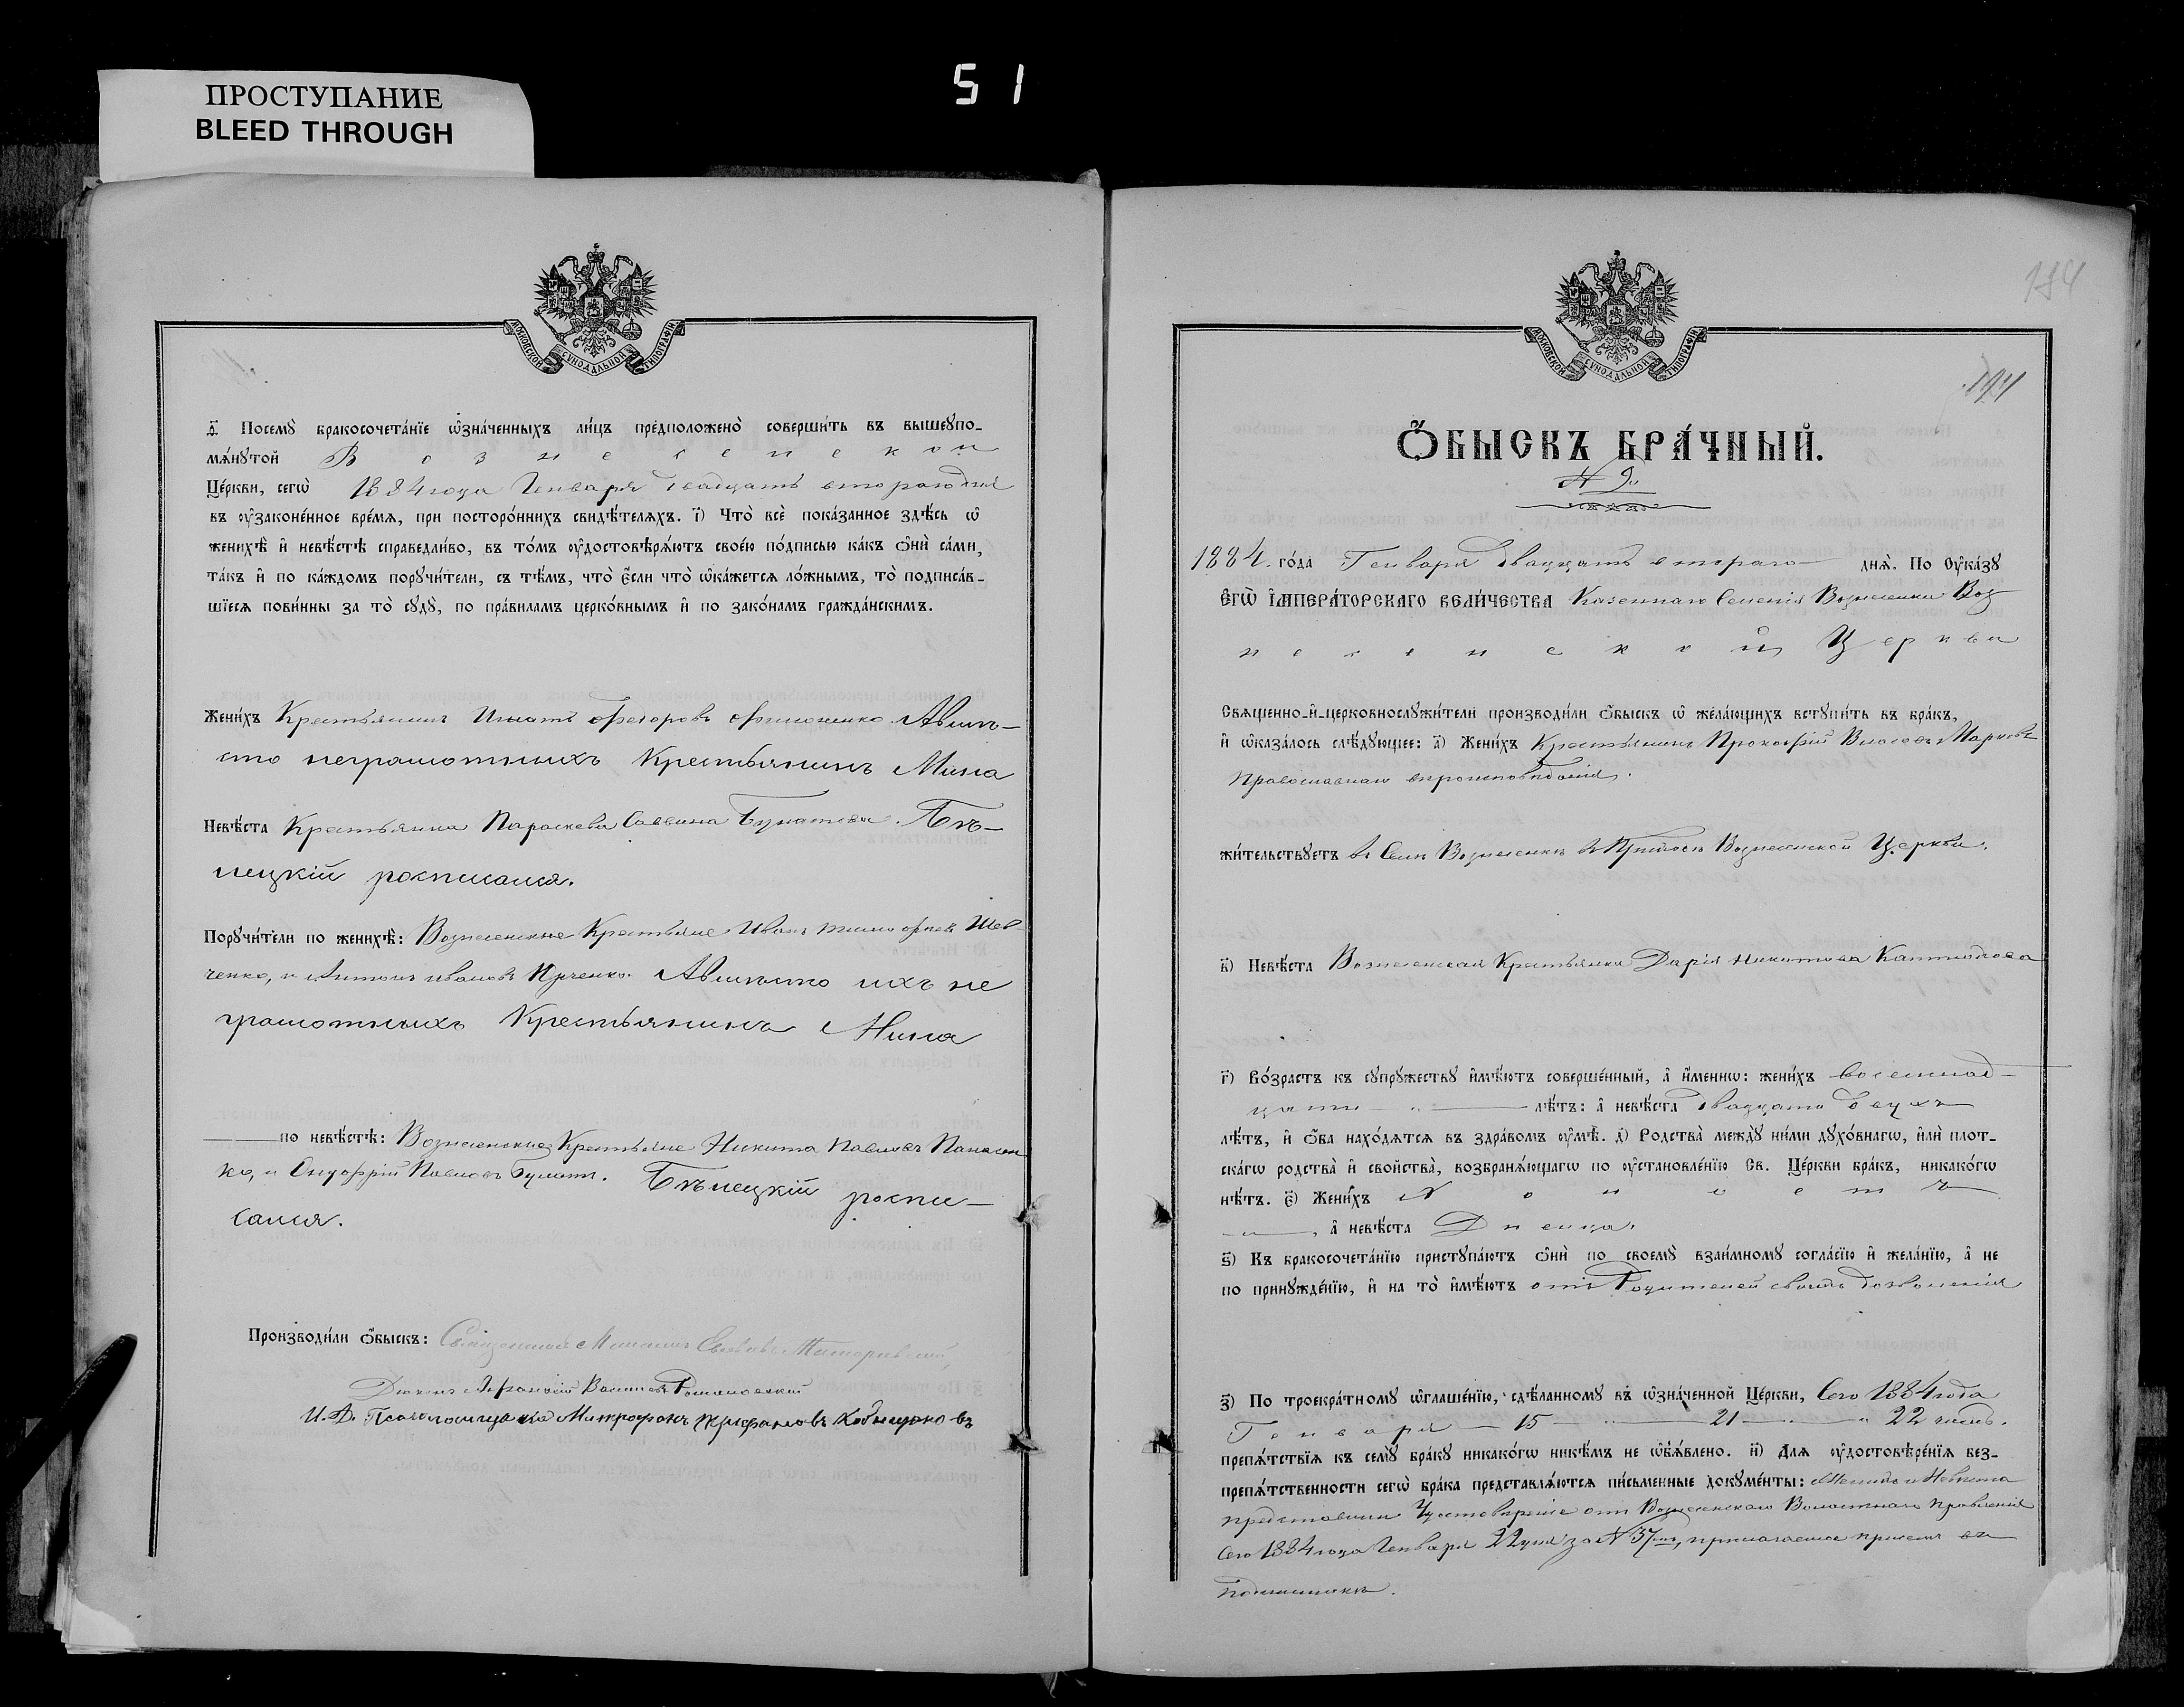 ПРОСТУПАНИЕ
BLEED THROUGH
51
МОСКОВСКОЙ СѴНОДАЛЬНОЙ ТИПОГРАФІИ
д҃ Посемꙋ̀ бракосочета́нїе ѡ҆зна́ченныхъ ли́цъ предположено̀ соверши́ть въ вышеꙋпо-
мѧ́нꙋтой Вознесенской
Це́ркви, сегѡ̀ 1884 года Генваря двадцать второго дня
въ ᲂу҆зако́ненное вре́мѧ, при посторо́ннихъ свидѣ́телѧхъ. і҃) Что̀ всѐ пока́занное здѣ́сь ѡ҆
женихѣ̀ и҆ невѣ́стѣ справедли́во, въ то́мъ ᲂу҆достовѣрѧ́ютъ свое́ю по́дписью ка́къ ѻ҆нѝ са́ми,
та́къ и҆ по ка́ждомъ порꙋчи́тели, съ тѣ́мъ, что̀ є҆́сли что̀ ѡ҆ка́жетсѧ ло́жнымъ, то̀ подписа́в-
шїесѧ пови́нны за то̀ сꙋдꙋ̀, по пра́виламъ церко́внымъ и҆ по зако́намъ гражда́нскимъ.
Жени́хъ Крестьянинъ Игнатъ Федоровъ Филоненко Авмѣ-
сто неграмотныхъ Крестьянинъ Мина
Невѣ́ста Крестьянка Параскева Саввина Бѣ-
лецкій росписался.
Порꙋчи́тели по женихѣ̀: Вознесенскіе Крестьяне Иванъ Тимофеевъ Шев
ченко, и Антонъ Ивановъ Авмѣсто ихъ не
грамотныхъ Крестьянинъ Мина
по невѣ́стѣ: Вознесенскіе Крестьяне Никита Павловъ Панасен
ко, и Онуфрій Павловъ Бѣлецкій роспи-
сался.
Производи́ли ѻ҆́быскъ: Священникъ
Діаконъ Афанасій Романовскій
И. Д. Псаломщика Митрофанъ
184
194
Ѻ҆́БЫСКЪ БРА́ЧНЫЙ.
№ 9й
1884. го́да Генваря двадцать второго днѧ̀. По Оу҆ка́зꙋ
Є҆ГѠ̀ И҆МПЕРА́ТОРСКАГО ВЕЛИ́ЧЕСТВА Казеннаго Селенія Вознесенки Воз
несенской Церкви
Свѧще́нно-и҆-церковнослꙋжи́тели производи́ли ѻ҆́быскъ ѡ҆ жела́ющихъ встꙋпи́ть въ бра́къ,
и҆ ѡ҆каза́лось слѣ́дꙋющее: а҃) Жени́хъ Крестьянинъ Прокофій Власовъ
Православнаго вѣроисповѣданія.
жи́тельствꙋетъ въ Селѣ Вознесенкѣ въ Приходѣ Вознесенской Церкви.
в҃) Невѣ́ста Вознесенская Крестьянка Дарія Никитова
г҃) Во́зрастъ къ сꙋпрꙋ́жествꙋ и҆мѣ́ютъ соверше́нный, а҆ и҆́меннѡ: жени́хъ восемнад-
цати лѣ́тъ: а҆ невѣ́ста двадцати двухъ
лѣ́тъ, и҆ ѻ҆́ба нахо́дѧтсѧ въ здра́вомъ ᲂу҆мѣ̀. д҃) Родства̀ междꙋ̀ ни́ми дꙋхо́внагѡ, и҆лѝ плот-
ска́гѡ родства̀ и҆ свойства̀, возбранѧ́ющагѡ по ᲂу҆становле́нїю Св. Це́ркви бра́къ, никако́гѡ
нѣ́тъ. є҃) Жени́хъ Холостъ
а҆ невѣ́ста Дѣвица.
ѕ҃) Къ бракосочета́нїю пристꙋпа́ютъ ѻ҆нѝ по своемꙋ̀ взаи́мномꙋ согла́сїю и҆ жела́нїю, а҆ не
по принꙋжде́нїю, и҆ на то̀ и҆мѣ́ютъ отъ Родителей своихъ дозволенія
з҃) По троекра́тномꙋ ѡ҆глаше́нїю, сдѣ́ланномꙋ въ ѡ҆зна́ченной Це́ркви, Сего 1884 года
Генваря 15 21 22 чиселъ.
препѧ́тствїѧ къ семꙋ̀ бра́кꙋ никако́гѡ никѣ́мъ не ѡ҆б̾ѧ́влено. и҃) Длѧ ᲂу҆достовѣре́нїѧ без-
препѧ́тственности сегѡ̀ бра́ка представлѧ́ютсѧ пи́сьменные докꙋме́нты: Женихъ и Невѣста
представили Удостовѣреніе отъ Вознесенскаго Волостнаго Правленія
Сего 1884 года Генваря 22 дня за № 37мъ, прилагаемое присемъ въ
подлинникѣ.